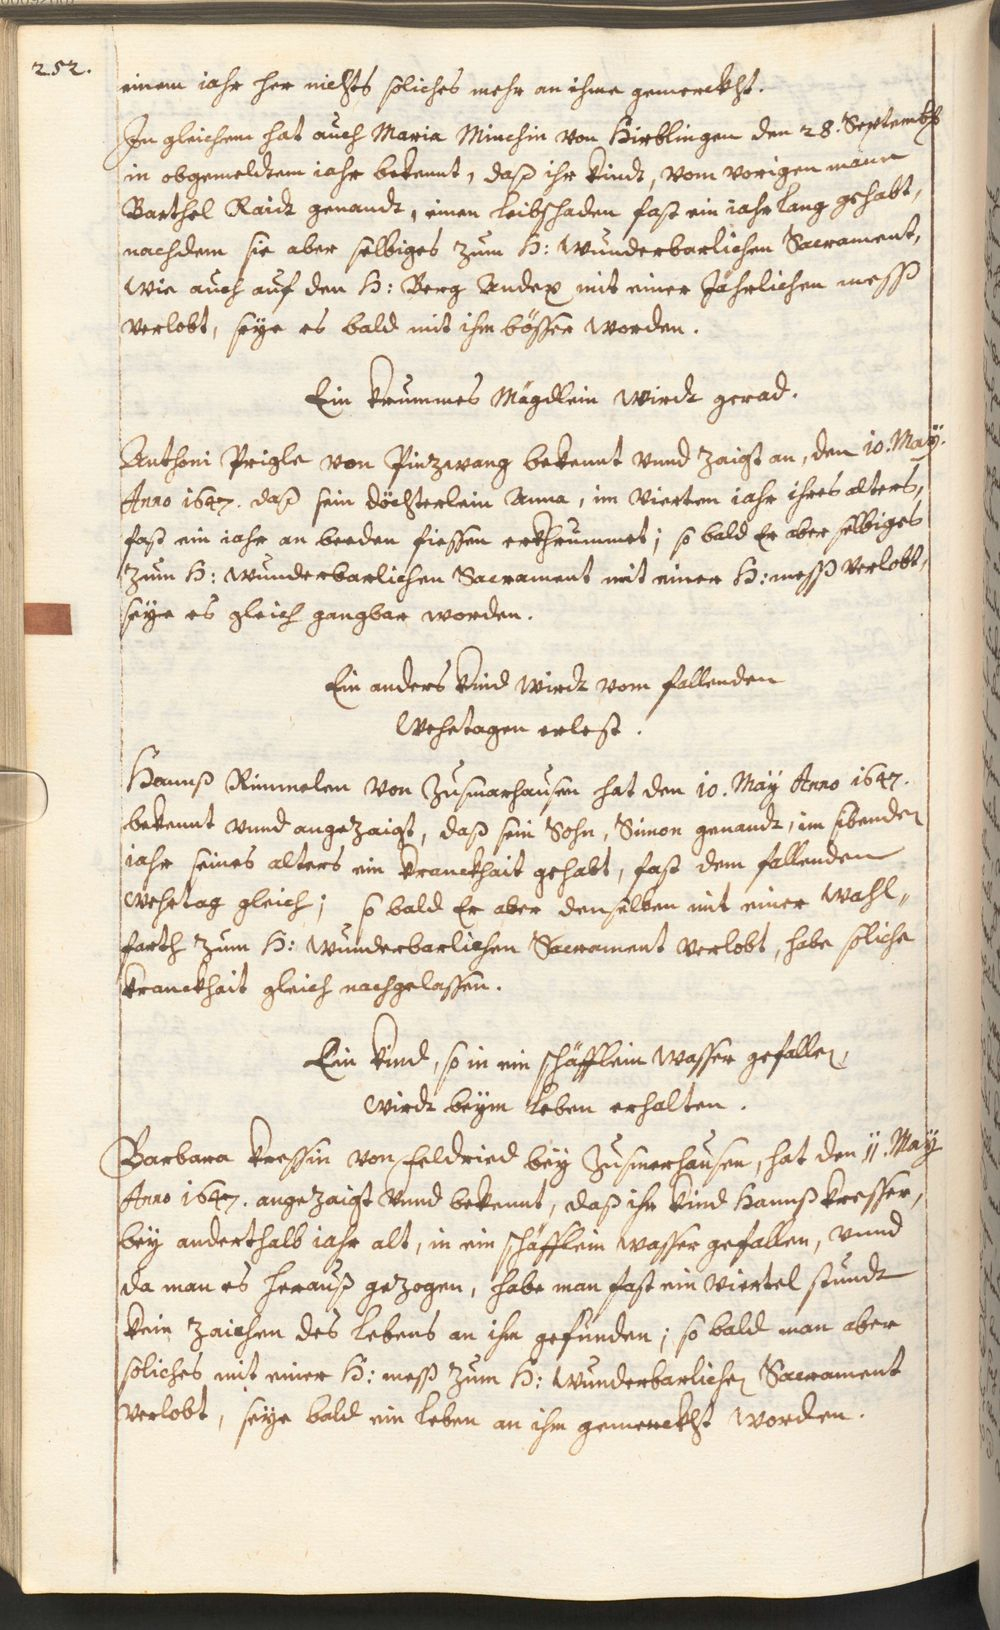 252.
einem iahr her nichts soliches mehr an ihme gemerckht.
In gleichem hat auch Maria Minchin von Hirblingen den 28. Septembris
in obgemeldtem iahr bekennt, daß ihr kindt, vom vorigen mann
Barthel Raidt genandt, einen leibschaden fast ein iahr lang gehabt,
nachdem sie aber selbiges zum H: Wunderbarlichen Sacrament,
wie auch auf den H: Berg Andex mit einer Jährlichen mess
verlobt, seye es bald mit ihm bösser worden.
Ein krummes Mägdlein wirdt gerad.
Anthoni Prigle von Pinzwang bekennt vnnd zaigt an, den 10. May.
Anno 1647. daß sein döchterlein Anna, im vierten iahr ihres alters,
fast ein iahr an beeden fiessen erkhrummet; so bald Er aber selbiges
zum H: Wunderbarlichen Sacrament mit einer H: mess verlobt,
seye es gleich gangbar worden.
Ein anders kind wirdt vom fallenden
Wehetagen erlest.
Hannß Rimmelen von Zusmarhausen hat den 10. May Anno 1647.
bekennt vnnd angezaigt, daß sein Sohn, Simon genandt, im sibenden
iahr seines alters ein kranckhait gehabt, fast dem fallenden
wehetag gleich; so bald Er aber denselben mit einer Wahl„
farth zum H: Wunderbarlichen Sacrament verlobt, habe soliche
kranckhait gleich nachgelassen.
Ein kind, so in ein schäfflein wasser gefallen,
wirdt beym leben erhalten.
Barbara kressin von Feldried bey Zusmerhausen, hat den 11. May
Anno 1647. angezaigt vnnd bekennt, daß ihr kind Hannß kresser,
bey anderthalb iahr alt, in ein schäfflein wasser gefallen, vnnd
da man es herauß gezogen, habe man fast ein viertel stundt
kein zaichen des lebens an ihm gefunden; so bald man aber
soliches mit einer H: mess zum H: Wunderbarlichen Sacrament
verlobt, seye bald ein leben an ihm gemerckht worden.